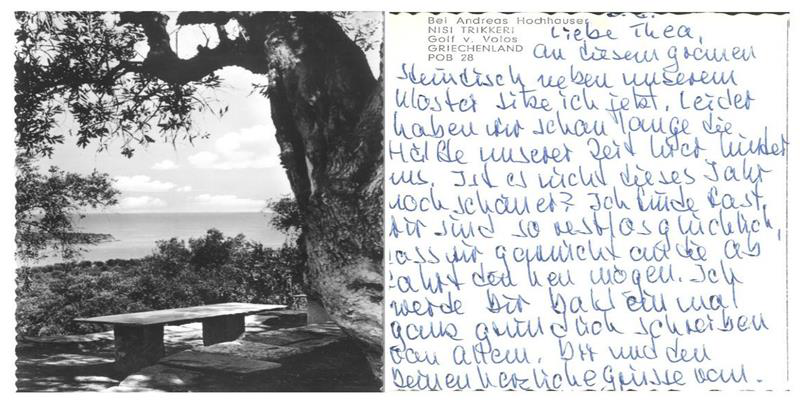 Bei Andreas Hochhauser
NISI TRIKKERI
Golf v. Volos
GRIECHENLAND
POB 28
Liebe Thea,
an diesem grossen
Steintisch neben unserem
Kloster sitze ich jetzt. Leider
haben wir schon lange die
Hälfte unserer Zeit hier hinter
uns. Ist es nicht dieses Jahr
noch schöner? Ich finde fast.
Wir sind so restlos glücklich,
dass wir garnicht an die Ab
fahrt denken mögen. Ich
werde Dir bald einmal
ganz gründlich schreiben
von allem. Dir und den
Deinen herzliche Grüsse vom.